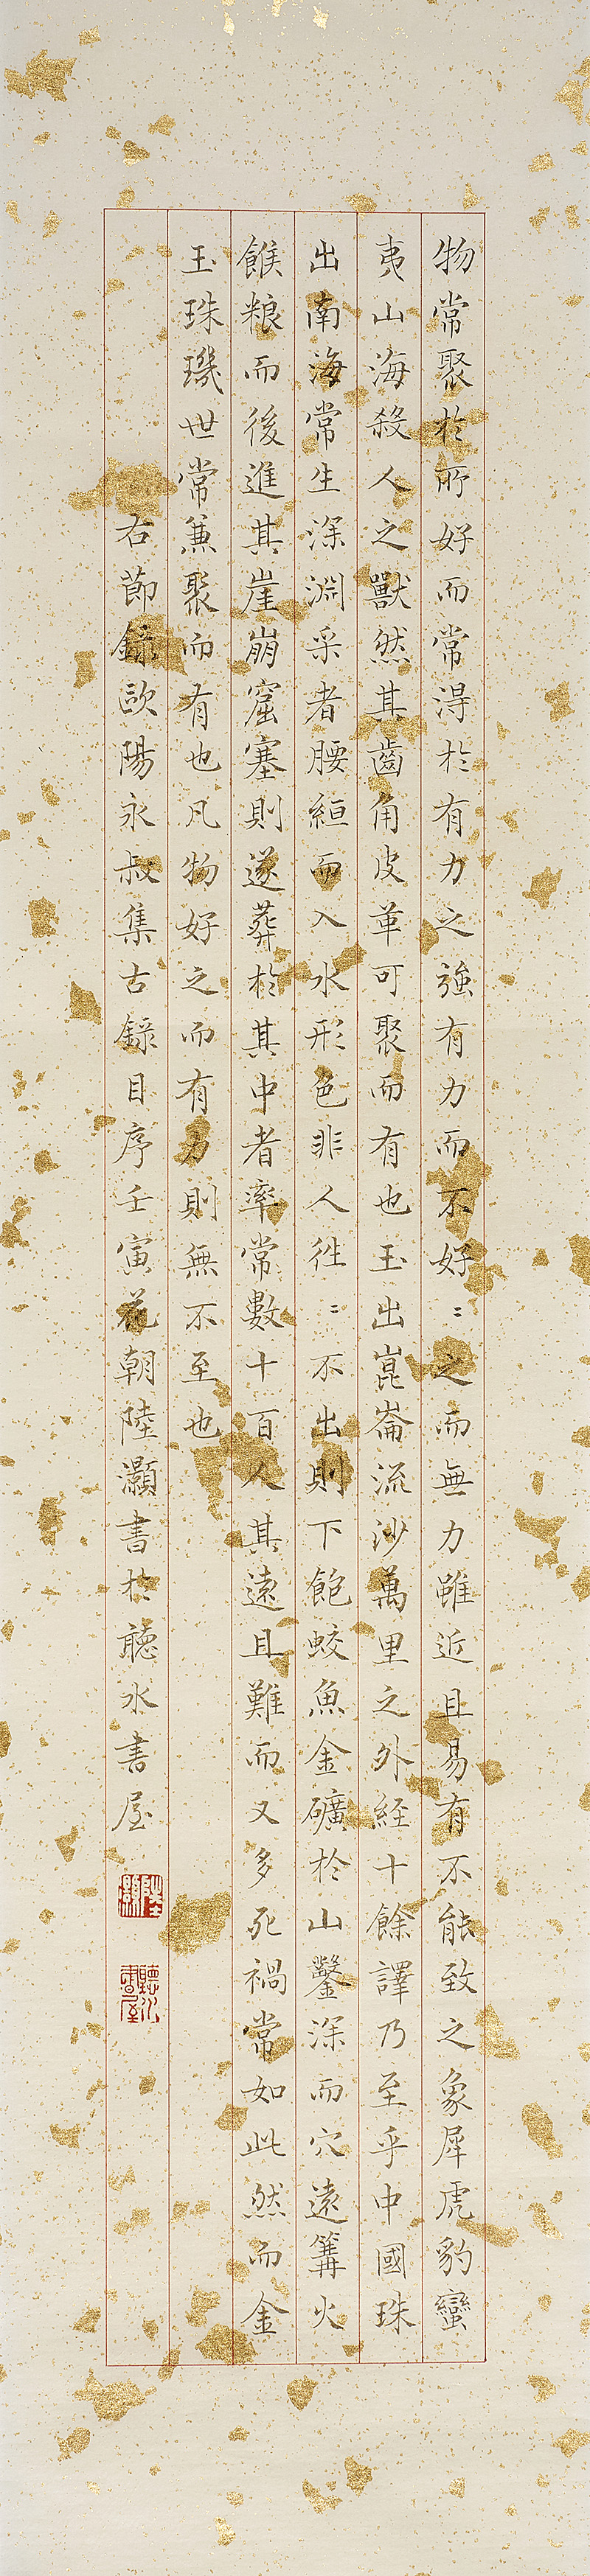 物常聚於所好而常得於有力之強有力而不好〻之而無力雖近且易有不能致之象犀虎豹蠻
夷山海殺人之獸然其齒角皮革可聚而有也玉出崑崙流沙萬里之外經十餘譯乃至乎中國珠
出南海常生深淵采者腰絙而入水形色非人往〻不出則下飽蛟魚金礦於山鑿深而穴遠篝火
餱粮而後進其崖崩窟塞則遂葬於其中者率常數十百人其遠且難而又多死禍常如此然而金
玉珠璣世常兼聚而有也凡物好之而有力則無不至也
右節錄歐陽永叔集古錄目序壬寅花朝陸灝書於聽水書屋
陸灝
聽水書屋